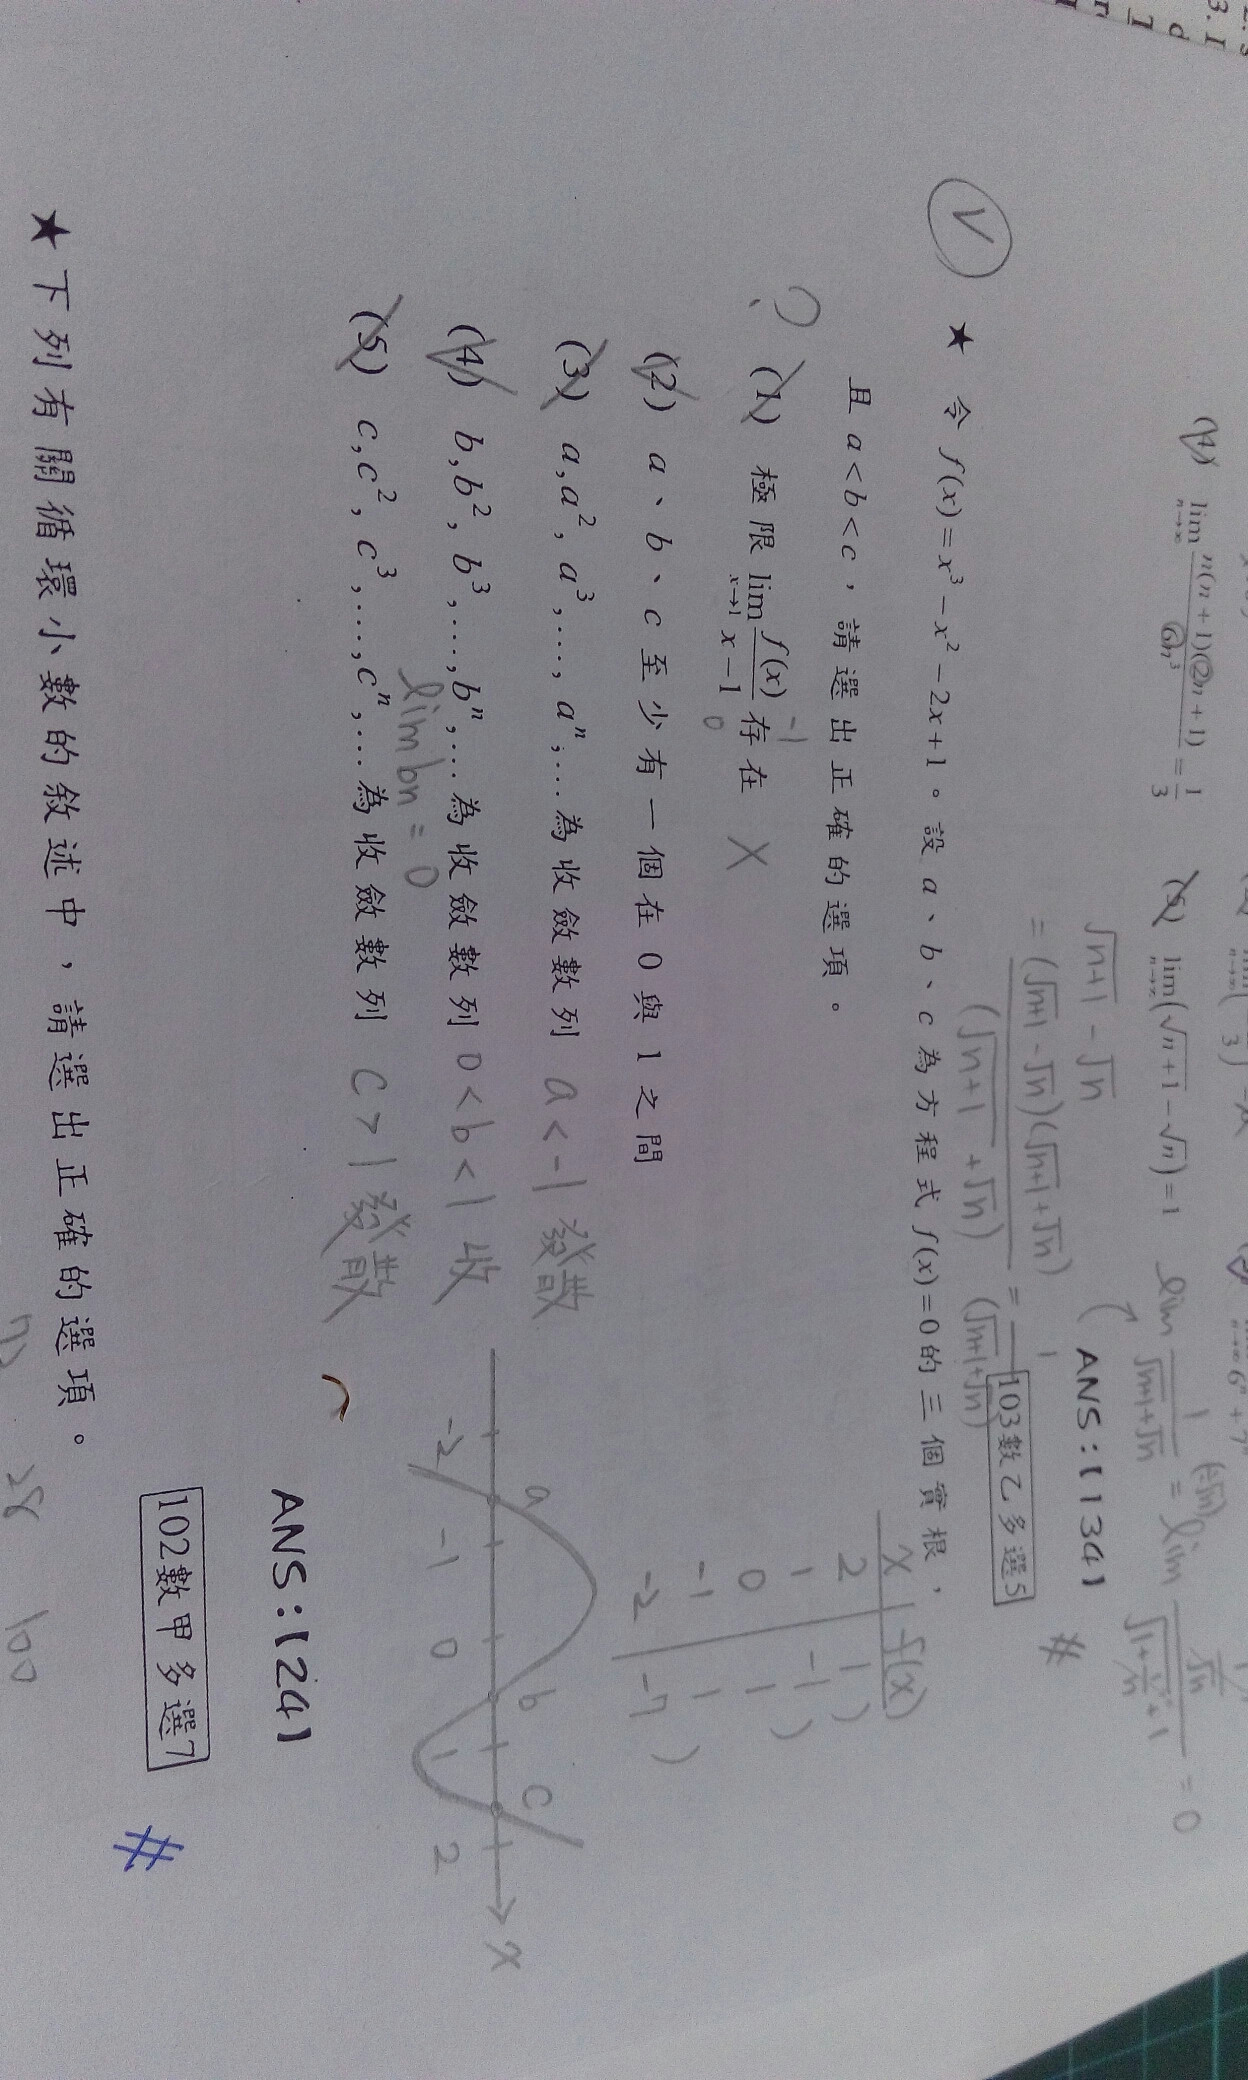 (4) lim n→∞ n(n+1)(2n+1)/6n³ = 1/3
(5) lim n→∞ (√n+1 − √n) = 1
√n+1 − √n
= (√n+1 − √n)(√n+1 + √n) / (√n+1 + √n) = 1 / (√n+1 + √n)
lim 1/(√n+1 + √n) (÷√n) = lim
= 0
ANS:(134) #
103數乙多選5
V ★ 令 f(x) = x³ − x² − 2x + 1。設 a、b、c 為方程式 f(x) = 0 的三個實根，
且 a < b < c，請選出正確的選項。
? (1) 極限 lim x→1 f(x)/(x−1) 存在 -1/0 X
(2) a、b、c 至少有一個在 0 與 1 之間
(3) a, a², a³, ...., aⁿ, ... 為收斂數列 a < -1 發散
(4) b, b², b³, ...., bⁿ, ... 為收斂數列 0 < b < 1 收
lim bn = 0
(5) c, c², c³, ...., cⁿ, ... 為收斂數列 c > 1 發散
x f(x)
2 1
1 -1
0 1
-1 1
-2 -7
a b c
-2 -1 0 1 2 x
ANS:(24)
102數甲多選7 #
★ 下列有關循環小數的敘述中，請選出正確的選項。
28 100